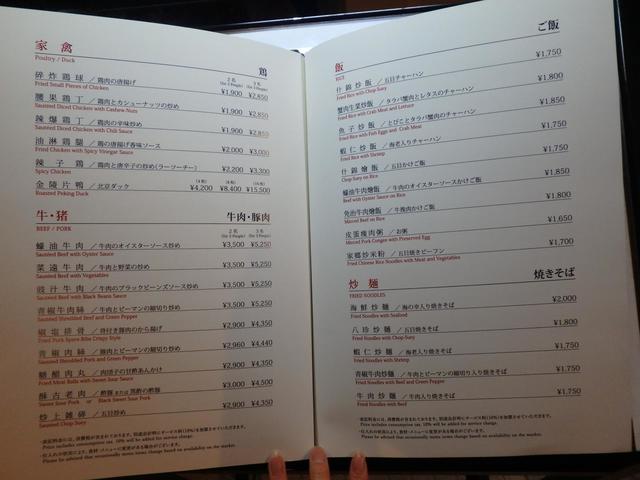 家禽 鶏
Poultry / Duck
2名 3名
(for 2 People) (for 3 People)
碎炸鶏球／鶏肉の唐揚げ ¥1,900 ¥2,850
Fried Small Pieces of Chicken
腰果鶏丁／鶏肉とカシューナッツの炒め ¥1,900 ¥2,850
Sautéed Diced Chicken with Cashew Nuts
辣爆鶏丁／鶏肉の辛味炒め ¥1,900 ¥2,850
Sautéed Diced Chicken with Chili Sauce
油淋鶏腿／鶏の唐揚げ香味ソース ¥2,000 ¥3,000
Fried Chicken with Spicy Vinegar Sauce
辣子鶏／鶏肉と唐辛子の炒め(ラーツーチー) ¥2,200 ¥3,300
Spicy Chicken
金陵片鴨／北京ダック ¥4,200 ¥8,400 ¥15,500
Roasted Peking Duck
牛・猪 牛肉・豚肉
BEEF / PORK
2名 3名
(for 2 People) (for 3 People)
蠔油牛肉／牛肉のオイスターソース炒め ¥3,500 ¥5,250
Sautéed Beef with Oyster Sauce
菜遠牛肉／牛肉と野菜の炒め ¥3,500 ¥5,250
Sautéed Beef with Vegetables
豉汁牛肉／牛肉のブラックビーンズソース炒め ¥3,500 ¥5,250
Sautéed Beef with Black Beans Sauce
青椒牛肉絲／牛肉とピーマンの細切り炒め ¥3,500 ¥5,250
Sautéed Shredded Beef and Green Pepper
椒塩排骨／骨付き豚肉のから揚げ ¥2,900 ¥4,350
Fried Pork Spare Ribs Crispy Style
青椒肉絲／豚肉とピーマンの細切り炒め ¥2,960 ¥4,440
Sautéed Shredded Pork and Green Pepper
糖醋肉丸／肉団子の甘酢あんかけ ¥2,900 ¥4,350
Fried Meat Balls with Sweet Sour Sauce
酥古老肉／酢豚または黒酢の酢豚 ¥3,000 ¥4,500
Sweet Sour Pork or Black Sweet Sour Pork
炒上雑碎／五目炒め ¥2,900 ¥4,350
Sautéed Chop Suey
・表記料金には、消費税が含まれております。別途会計時にサービス料(10%)を加算させていただきます。
Price includes consumption tax. 10% will be added for service charge.
・仕入れの状況により、食材・メニューに変更がある場合がございます。
Please be advised that occasionally menu items change based on availability on the market.
飯 ご飯
RICE
什錦炒飯／五目チャーハン ¥1,750
Fried Rice with Chop Suey
蟹肉生菜炒飯／タラバ蟹肉とレタスのチャーハン ¥1,800
Fried Rice with Crab Meat and Lettuce
魚子炒飯／とびことタラバ蟹肉のチャーハン ¥1,850
Fried Rice with Fish Eggs and Crab Meat
蝦仁炒飯／海老入りチャーハン ¥1,750
Fried Rice with Shrimp
什錦燴飯／五目かけご飯 ¥1,750
Chop Suey on Rice
蠔油牛肉燴飯／牛肉のオイスターソースかけご飯 ¥1,850
Beef with Oyster Sauce on Rice
免治牛肉燴飯／牛挽肉かけご飯 ¥1,800
Minced Beef on Rice
皮蛋痩肉粥／お粥 ¥1,650
Minced Pork Congee with Preserved Egg
家郷炒米粉／五目焼きビーフン ¥1,700
Fried Chinese Rice Noodles with Meat and Vegetables
炒麺 焼きそば
FRIED NOODLES
海鮮炒麺／海の幸入り焼きそば ¥2,000
Fried Noodles with Seafood
八珍炒麺／五目焼きそば ¥1,800
Fried Noodles with Chop Suey
蝦仁炒麺／海老入り焼きそば ¥1,750
Fried Noodles with Shrimp
青椒牛肉炒麺／牛肉とピーマンの細切り入り焼きそば ¥1,750
Fried Noodles with Beef and Green Pepper
牛肉炒麺／牛肉入り焼きそば ¥1,750
Fried Noodles with Beef
・表記料金には、消費税が含まれております。別途会計時にサービス料(10%)を加算させていただきます。
Price includes consumption tax. 10% will be added for service charge.
・仕入れの状況により、食材・メニューに変更がある場合がございます。
Please be advised that occasionally menu items change based on availability on the market.